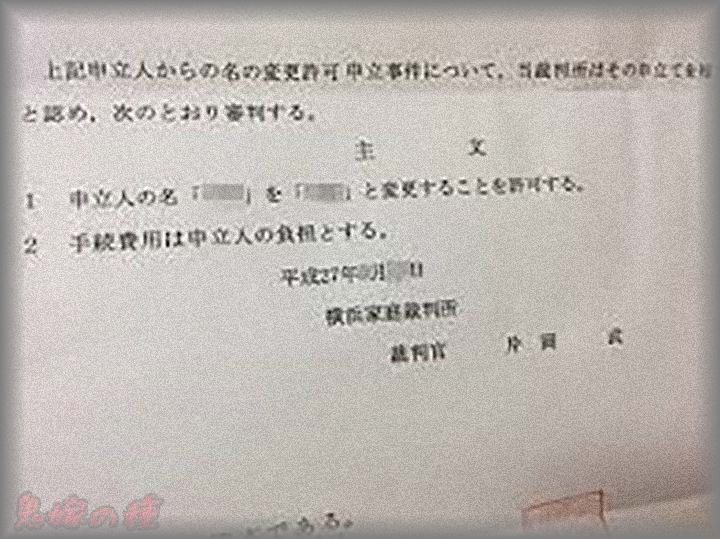 上記申立人からの名の変更許可申立事件について，当裁判所はその申立てを相
と認め，次のとおり審判する。
主 文
1 申立人の名「」を「」と変更することを許可する。
2 手続費用は申立人の負担とする。
平成27年 月 日
横浜家庭裁判所
裁判官 片岡 武
である。
鬼嫁の種